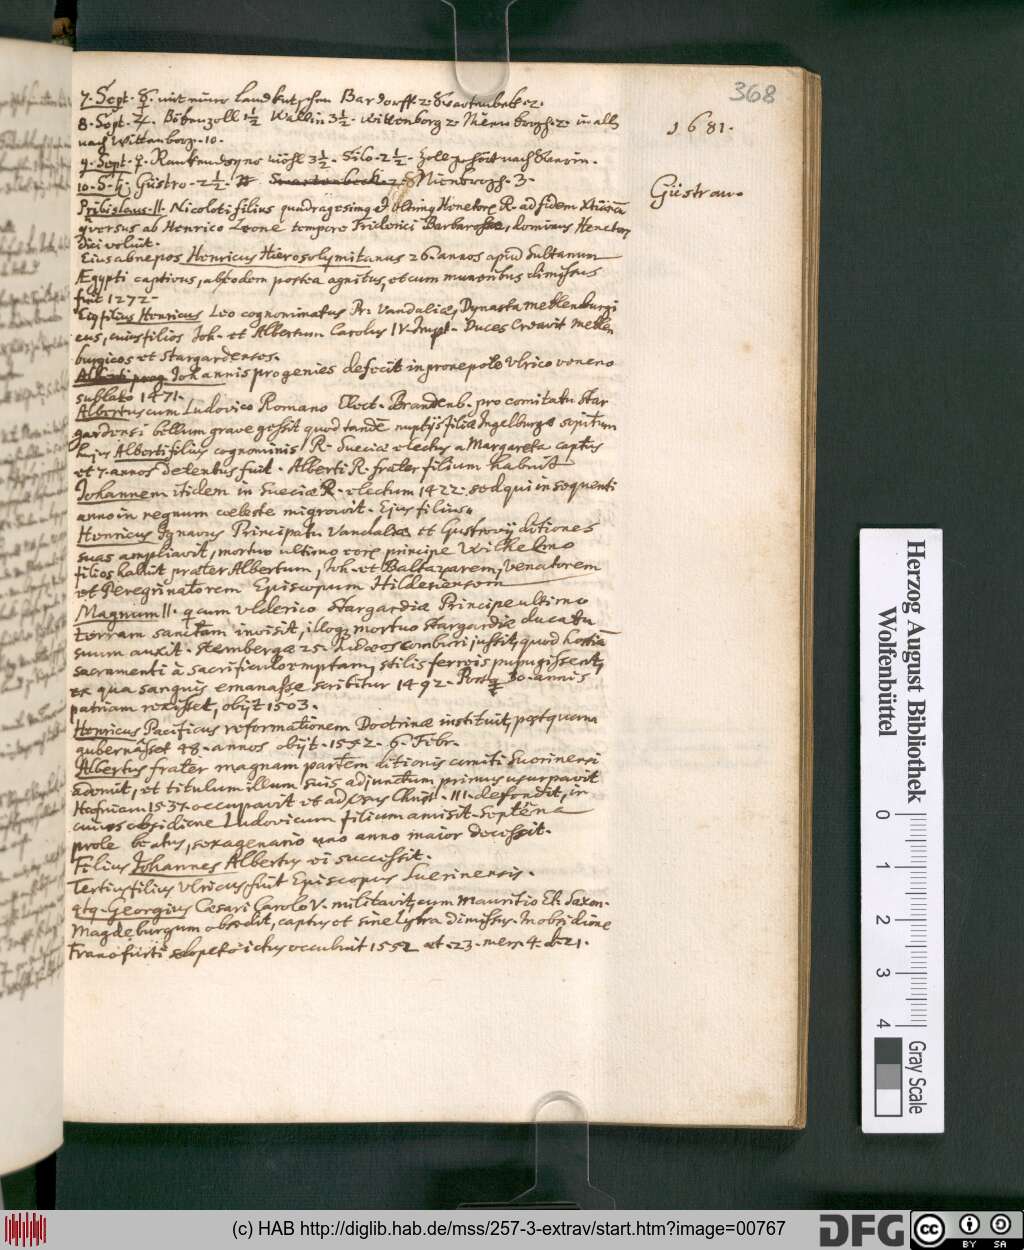 368
1681.
7. Sept. ☿. mit einer Landkutschen Bardorff 2. Swartenbek 2.
8. Sept. ♃. Bötenzoll 1½ Wallin 3½. Wittenborg 2. Niens 2. in alls
nach Wittenborg. 10.
9. Sept. ♀. 3½. Silo. 2½. Zoll gehört nach Swerin.
10. S. ♄. Güstro. 2½. Swartenbeck 2. 3.
Güstrow.
Pribislaus. II. Nicoloti filius quadragesimus et ultimus Henetorum R. ad fidem Xtianam
conversus ab Henrico Leone tempore Friderici Barbarossae, dominus Henetorum
dici voluit.
Eius abnepos Henricus Hierosolymitanus 26. annos apud Sultanum
Ægypti captivus, ab eodem postea agnitus, et cum muneribus dimissus
fuit 1272.
Eius filius Henricus Leo cognominatus Pr. Vandaliæ, Dynasta Meklenburgi
cus, cuius filios Joh. et Albertum Carolus IV. Imp. Duces creavit Meklen
burgicos et Stargardenses.
Johannis progenies defecit in pronepote Ulrico veneno
sublato 1471.
Albertus cum Ludovico Romano Elect. Brandenb. pro comitatu Star
gardensi bellum grave gessit quod tande nuptijs filiæ Ingelburgæ sopitum
hujus Alberti filius cognominis R. Sueciæ electus a Margareta captus
et 7. annos detentus fuit. Alberti R. frater filium habuit
Johannem itidem in Sueciæ R. electum 1422. sed qui insequenti
anno in regnum cœleste migrovit. Ejus filius
Henricus Ignavus Principatu Vandaliæ et Gustrovij ditiones
suas ampliavit, mortuo ultimo eorum principe Wilhelmo
filios habuit præter Albertum, Joh. et Baltazarem, Venatorem
et Peregrinatorem Episcopum Hildesiensem
Magnum II. qui cum Ulderico Stargardiæ Principe ultimo
terram sanctam invisit, illoque mortuo Stargardiæ ducatu
suum auxit. Sternbergæ 25. Judæos comburi jussit, quod hostia
sacramenti à sacrificulo emptam, stilis ferreis pupugissent,
ex qua sanguis emanasse scribitur 1492. Postquam 30. annis
patriam rexisset, obijt 1503.
Henricus Pacificus reformationem Doctrinæ instituit, postquam
gubernasset 48. annos obijt. 1552. 6. Febr.
Albertus frater magnam partem ditionis comiti Suerinensi
ademit, et titulum illum suis adjunctum primus usurpavit
Hafniam 1537. occupavit et adversus Christ. III. defendit, in
cuius obsidione Ludovicum filium amisit. Septena
prole beatus, sexagenario uno anno maior decessit.
Filius Johannes Albertus ei successit.
Tertius filius Ulricus, fuit Episcopus Suerinensis.
4tus. Georgius Cæsari Carolo V. militavit, cum Mauritio El. Saxon.
Magdeburgum obsedit, captus et sine lytra dimissus. In obsidione
Francofurti sclopeto ictus occubuit 1552 æt. 23. mens. 4. d. 21.
Herzog August Bibliothek
Wolfenbüttel
0 1 2 3 4
Gray Scale
(c) HAB http://diglib.hab.de/mss/257-3-extrav/start.htm?image=00767
DFG
cc BY SA